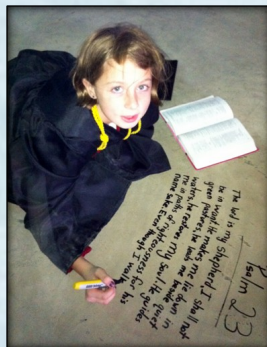 Psalm 23
The Lord is my shepherd, I shall not
be in want. He makes me lie down in
green pastures, he leads me beside quiet
waters, he restores my soul. He guides
me in paths of righteousness for his
name sake. Even though I walk